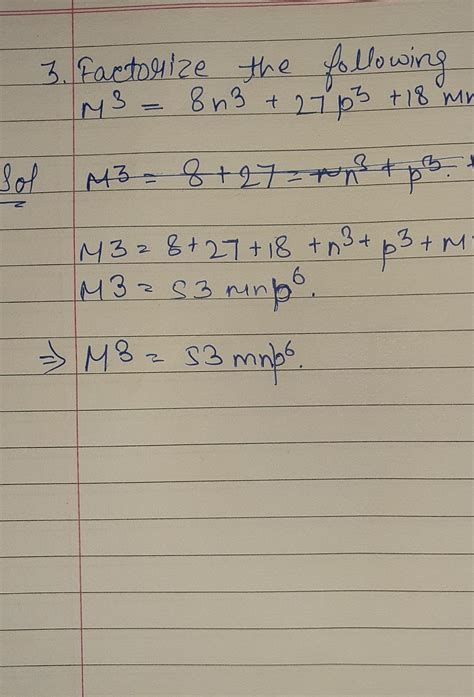 3. Factorize the following
M³ = 8n³ + 27p³ + 18 mn
Sol M3 = 8 + 27 = n³ + p3.
M3 = 8 + 27 + 18 + n3 + p3 + M
M3 = 53 mnp⁶.
⇒ M3 = 53 mnp⁶.